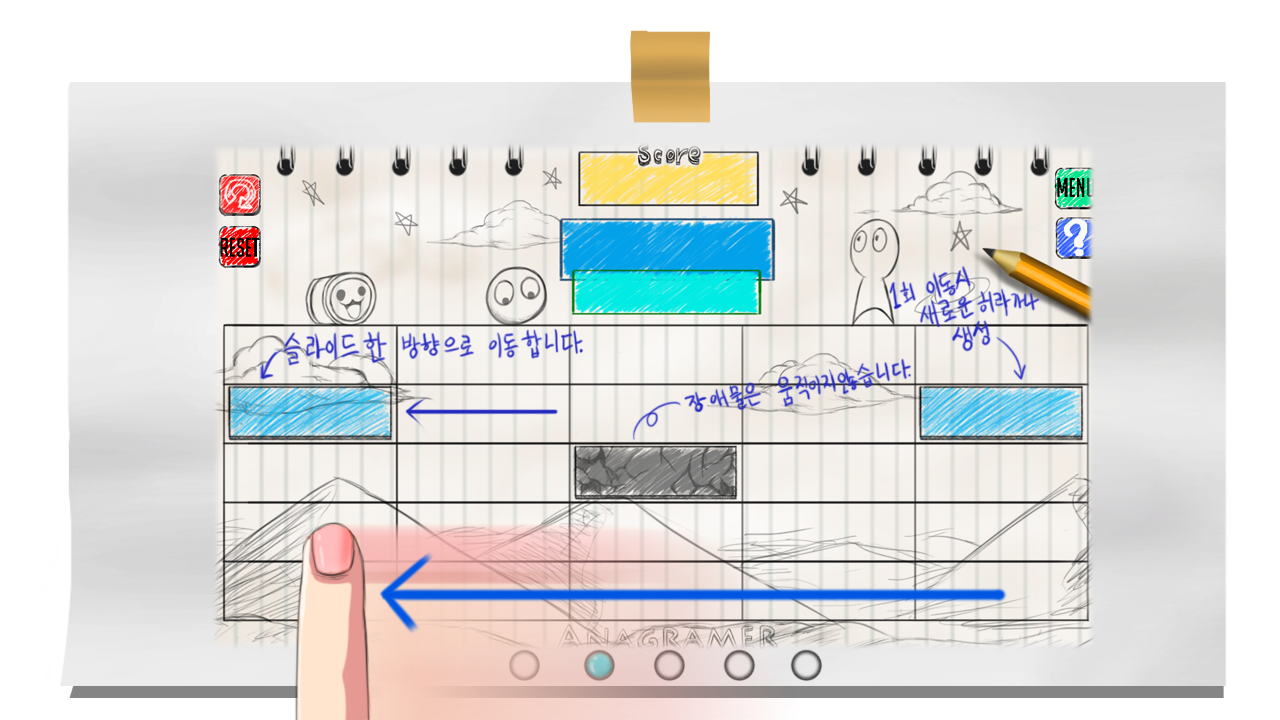 Score
MENU
RESET
?
1회 이동시
새로운 허라까나
생성
슬라이드 한 방향으로 이동합니다.
장애물은 움직이지않습니다.
ANAGRAMER